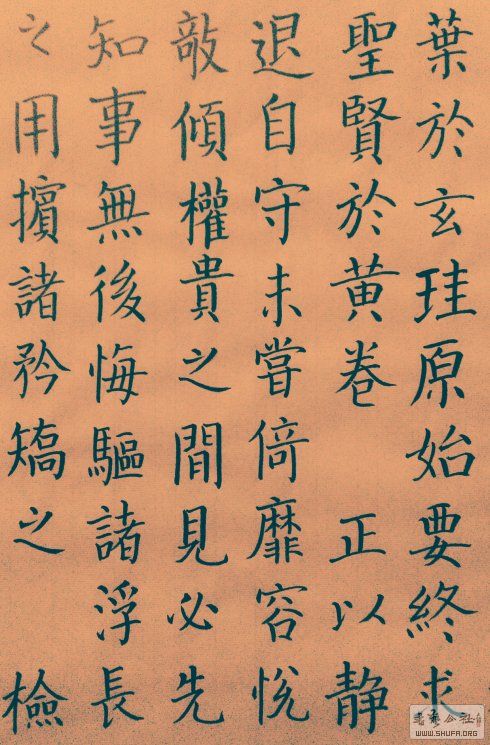 葉於玄珪原始要終求
聖賢於黄卷 正以静
退自守未嘗倚靡容悅
敲傾權貴之間見必先
知事無後悔驅諸浮長
之用擯諸矜矯之 檢
WWW.SHUFA.ORG